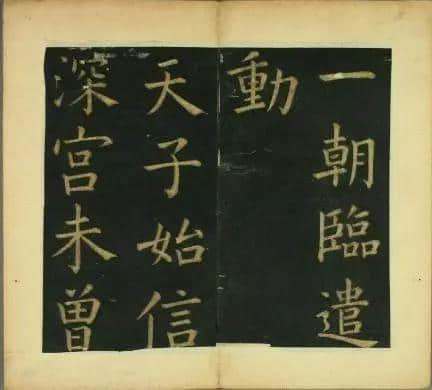 一朝臨遣
動
天子始信
深宫未曾